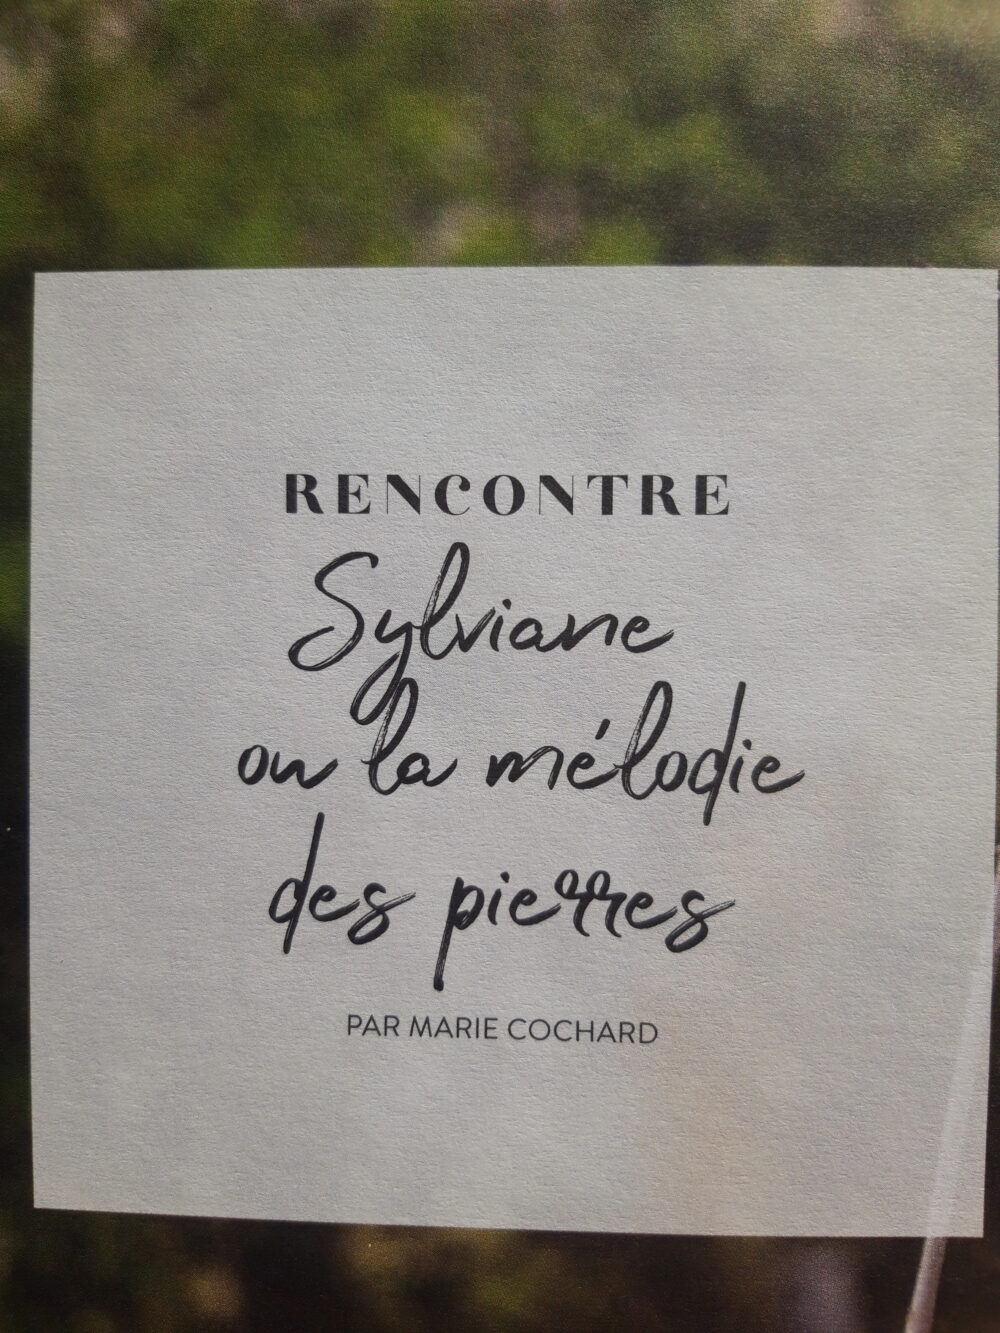 RENCONTRE
Sylviane
ou la mélodie
des pierres
PAR MARIE COCHARD